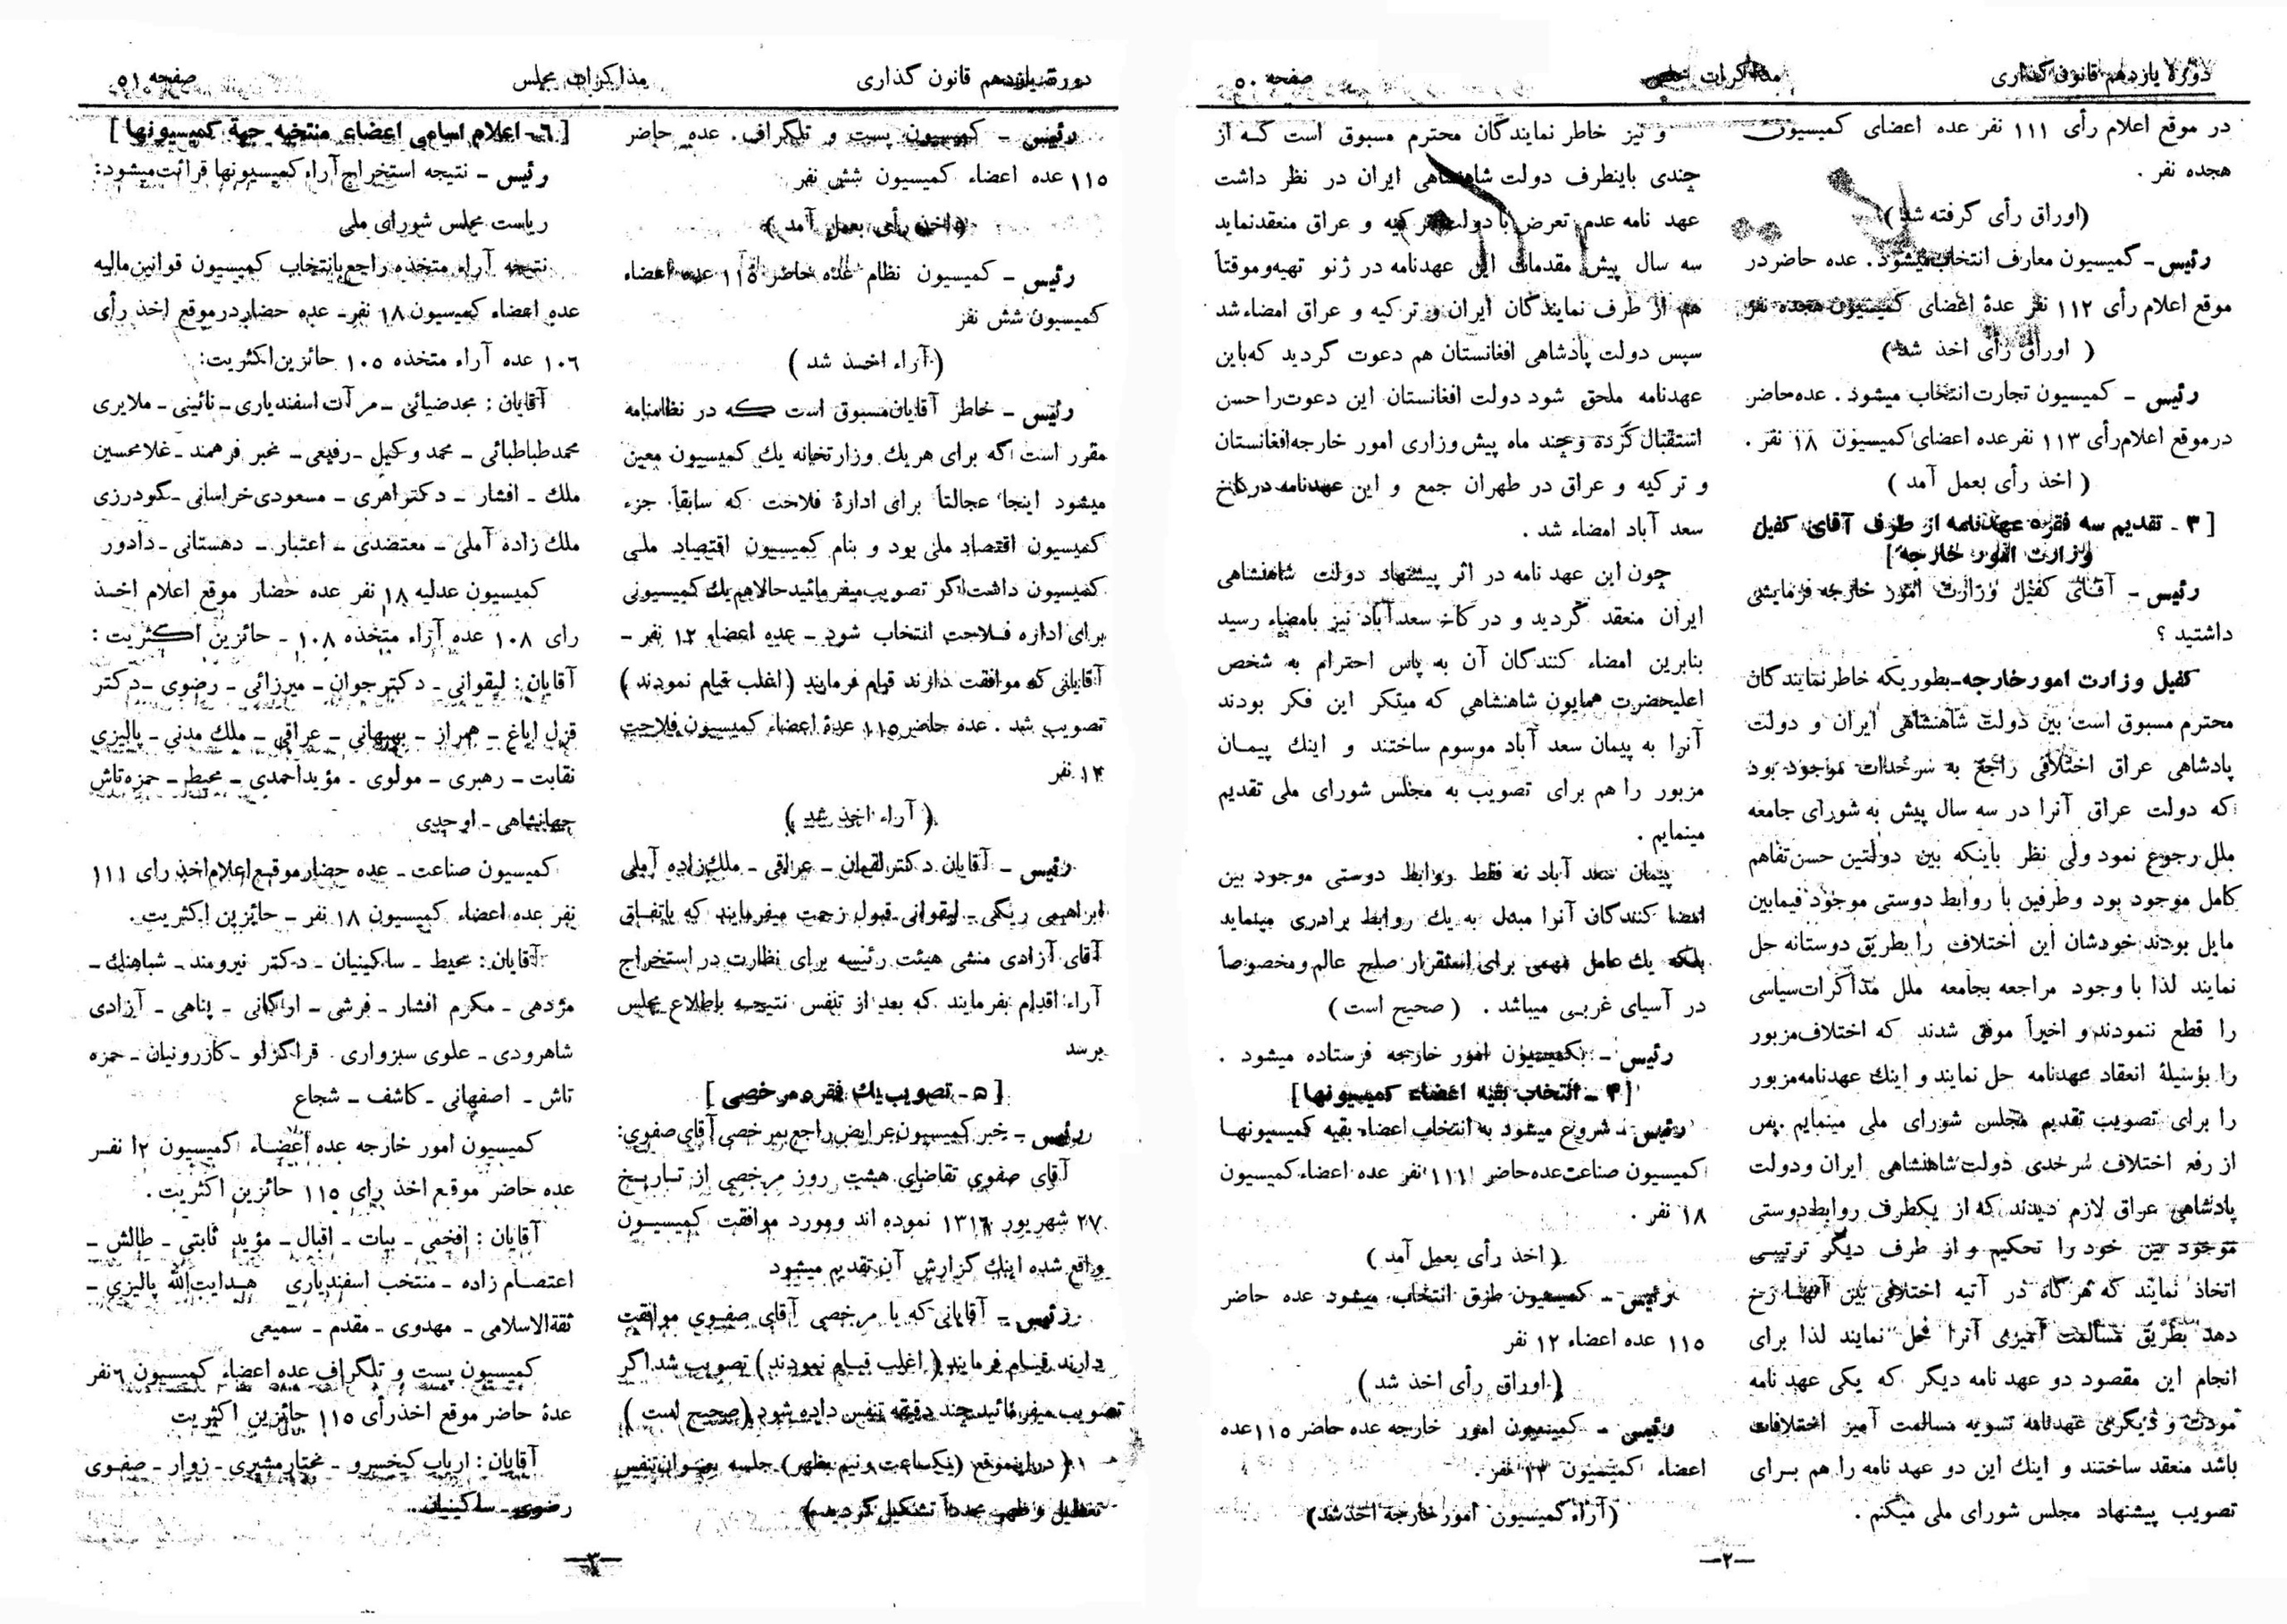 دورة یازدهم قانون گذاری
مذاکرات مجلس
صفحه ۵۰
در موقع اعلام رأی ۱۱۱ نفر عده اعضای کمیسیون
هجده نفر .
(اوراق رأی گرفته شد)
رئیس – کمیسیون معارف انتخاب میشود . عده حاضر در
موقع اعلام رأی ۱۱۲ نفر عدهٔ اعضای کمیسیون هجده نفر
( اوراق رأی اخذ شد)
رئیس – کمیسیون تجارت انتخاب میشود . عده حاضر
در موقع اعلام رأی ۱۱۳ نفر عده اعضای کمیسیون ۱۸ نفر .
( اخذ رأی بعمل آمد )
[ ۳ - تقدیم سه فقره عهدنامه از طرف آقای کفیل
وزارت امور خارجه ]
رئیس – آقای کفیل وزارت امور خارجه فرمایشی
داشتید ؟
کفیل وزارت امور خارجه–بطوریکه خاطر نمایندگان
محترم مسبوق است بین دولت شاهنشاهی ایران و دولت
پادشاهی عراق اختلافی راجع به سرحدات موجود بود
که دولت عراق آنرا در سه سال پیش به شورای جامعه
ملل رجوع نمود ولی نظر باینکه بین دولتین حسن تفاهم
کامل موجود بود و طرفین با روابط دوستی موجود فیمابین
مایل بودند خودشان این اختلاف را بطریق دوستانه حل
نمایند لذا با وجود مراجعه بجامعه ملل مذاکرات سیاسی
را قطع ننمودند و اخیراً موفق شدند که اختلاف مزبور
را بوسیلهٔ انعقاد عهدنامه حل نمایند و اینك عهدنامه مزبور
را برای تصویب تقدیم مجلس شورای ملی مینمایم .پس
از رفع اختلاف سرحدی دولت شاهنشاهی ایران و دولت
پادشاهی عراق لازم دیدند که از یکطرف روابط دوستی
موجود بین خود را تحکیم و از طرف دیگر ترتیبی
اتخاذ نمایند که هرگاه در آتیه اختلافی بین آنهـا رخ
دهد بطریق مسالمت آمیزی آنرا حل نمایند لذا برای
انجام این مقصود دو عهد نامه دیگر که یکی عهد نامه
مودت و دیگری عهدنامه تسویه مسالمت آمیز اختلافات
باشد منعقد ساختند و اینك این دو عهد نامه را هم برای
تصویب پیشنهاد مجلس شورای ملی میکنم .
و نیز خاطر نمایندگان محترم مسبوق است که از
چندی باینطرف دولت شاهنشاهی ایران در نظر داشت
عهد نامه عدم تعرض با دولت ترکیه و عراق منعقد نماید
سه سال پیش مقدمات این عهدنامه در ژنو تهیه و موقتاً
هم از طرف نمایندگان ایران و ترکیه و عراق امضاء شد
سپس دولت پادشاهی افغانستان هم دعوت گردید که باین
عهدنامه ملحق شود دولت افغانستان این دعوت را حسن
استقبال کرده و چند ماه پیش وزاری امور خارجه افغانستان
و ترکیه و عراق در طهران جمع و این عهدنامه در کاخ
سعد آباد امضاء شد .
چون این عهد نامه در اثر پیشنهاد دولت شاهنشاهی
ایران منعقد گردید و در کاخ سعد آباد نیز بامضاء رسید
بنابرین امضاء کنندگان آن به پاس احترام به شخص
اعلیحضرت همایون شاهنشاهی که مبتکر این فکر بودند
آنرا به پیمان سعد آباد موسوم ساختند و اینك پیمـان
مزبور را هم برای تصویب به مجلس شورای ملی تقدیم
مینمایم .
پیمان سعد آباد نه فقط روابط دوستی موجود بین
امضا کنندگان آنرا مبدل به یك روابط برادری مینماید
بلکه یك عامل مهمی برای استقرار صلح عالم و مخصوصاً
در آسیای غربی میباشد . ( صحیح است )
رئیس – بکمیسیون امور خارجه فرستاده میشود .
[ ۴ – انتخاب بقیه اعضاء کمیسیونها ]
رئیس – شروع میشود به انتخاب اعضاء بقیه کمیسیونهـا
کمیسیون صناعت عده حاضر ۱۱۱ نفر عده اعضاء کمیسیون
۱۸ نفر .
( اخذ رأی بعمل آمد )
رئیس – کمیسیون طرق انتخاب میشود عده حاضر
۱۱۵ عده اعضاء ۱۲ نفر
( اوراق رأی اخذ شد )
رئیس – کمیسیون امور خارجه عده حاضر ۱۱۵ عده
اعضاء کمیسیون ۱۲ نفر .
(آراء کمیسیون امور خارجه اخذ شد)
—۲—
دورة یازدهم قانون گذاری
مذاکرات مجلس
صفحه ۵۱
رئیس – کمیسیون پست و تلگراف . عده حاضر
۱۱۵ عده اعضاء کمیسیون شش نفر
(اخذ رأی بعمل آمد )
رئیس – کمیسیون نظام عده حاضر ۱۱۵ عده اعضاء
کمیسیون شش نفر
( آراء اخذ شد )
رئیس – خاطر آقایان مسبوق است که در نظامنامه
مقرر است که برای هر یك وزارتخانه یك کمیسیون معین
میشود اینجا عجالتاً برای ادارهٔ فلاحت که سابقاً جزء
کمیسیون اقتصاد ملی بود و بنام کمیسیون اقتصاد ملی
کمیسیون داشت اگر تصویب میفرمائید حالا هم یك کمیسیونی
برای اداره فـلاحت انتخاب شود – عده اعضاء ۱۲ نفر –
آقایانی که موافقت دارند قیام فرمایند (اغلب قیام نمودند )
تصویب شد . عده حاضر ۱۱۵ عدهٔ اعضاء کمیسیون فلاحت
۱۲ نفر
( آراء اخذ شد )
رئیس – آقایان دکتر لقمان – عراقی – ملك زاده آملی
ابراهیمی ریگی – لیقوانی قبول زحمت میفرمایند که باتفـاق
آقای آزادی منشی هیئت رئیسه برای نظارت در استخراج
آراء اقدام بفرمایند که بعد از تنفس نتیجـه باطلاع مجلس
برسد
[ ۵ – تصویب یك فقره مرخصی ]
رئیس – خبر کمیسیون عرایض راجع بمرخصی آقای صفوی:
آقای صفوی تقاضای هشت روز مرخصی از تـاریـخ
۲۷ شهریور ۱۳۱۶ نموده اند و مورد موافقت کمیسیـون
واقع شده اینك گزارش آن تقدیم میشود
رئیس – آقایانی که با مرخصی آقای صفـوی موافقت
دارند قیـام فرمایند ( اغلب قیـام نمودند ) تصویب شد اگر
تصویب میفرمائید چند دقیقه تنفس داده شود (صحیح است )
( در اینموقع (یکساعت و نیم بظهر) جلسه بعنوان تنفس
تعطیل و ظهر مجدداً تشکیل گردید)
[ ۶ – اعلام اسامی اعضاء منتخبه جهة کمیسیونها ]
رئیس – نتیجه استخراج آراء کمیسیونها قرائت میشود:
ریاست مجلس شورای ملی
نتیجه آراء متخذه راجع بانتخاب کمیسیون قوانین مالیه
عده اعضاء کمیسیون ۱۸ نفر– عده حضار در موقع اخذ رأی
۱۰۶ عده آراء متخذه ۱۰۵ حائزین اکثریت:
آقایان : مجد ضیائی – مرآت اسفندیاری – نائینی – ملایری
محمد طباطبائی – محمد وکیل – رفیعی – مخبر فرهمند – غلامحسین
ملك – افشار – دکتر اهری – مسعودی خراسانی – گودرزی
ملك زاده آملی – معتضدی – اعتبار – دهستانی – دادور
کمیسیون عدلیه ۱۸ نفر عده حضار موقع اعلام اخـذ
رای ۱۰۸ عده آراء متخذه ۱۰۸ – حائزین اکثریت :
آقایان : لیقوانی – دکتر جوان – میرزائی – رضوی – دکتر
قزل ایاغ – همراز – بهبهانی – عراقی – ملك مدنی – پالیزی
نقابت – رهبری – مولوی – مؤید احمدی – محیط – حمزه تاش
جهانشاهی – اوحدی
کمیسیون صناعت – عده حضار موقع اعلام اخذ رای ۱۱۱
نفر عده اعضاء کمیسیون ۱۸ نفر – حائزین اکثریت .
آقایان : محیط – ساکینیان – دکتر نیرومند – شباهنك –
مژدهی – مکرم افشار – فرشی – اورگانی – پناهی – آزادی
شاهرودی – علوی سبزواری . قراگزلو – کازرونیان – حمزه
تاش – اصفهانی – کاشف – شجاع
کمیسیون امور خارجه عده اعضـاء کمیسیون ۱۲ نفـر
عده حاضر موقع اخذ رای ۱۱۵ حائزین اکثریت .
آقایان : افخمی – بیات – اقبال – مؤید ثابتی – طالش –
اعتصـام زاده – منتخب اسفندیاری هـدایت الله پالیزی –
ثقةالاسلامی – مهدوی – مقدم – سمیعی
کمیسیون پست و تلگراف عده اعضاء کمیسیون ۶ نفر
عدهٔ حاضر موقع اخذ رأی ۱۱۵ حائزین اکثریت
آقایان : ارباب کیخسرو – مختار مشیری – زوار – صفـوی
رضوی – ساکینیان .
—۳—